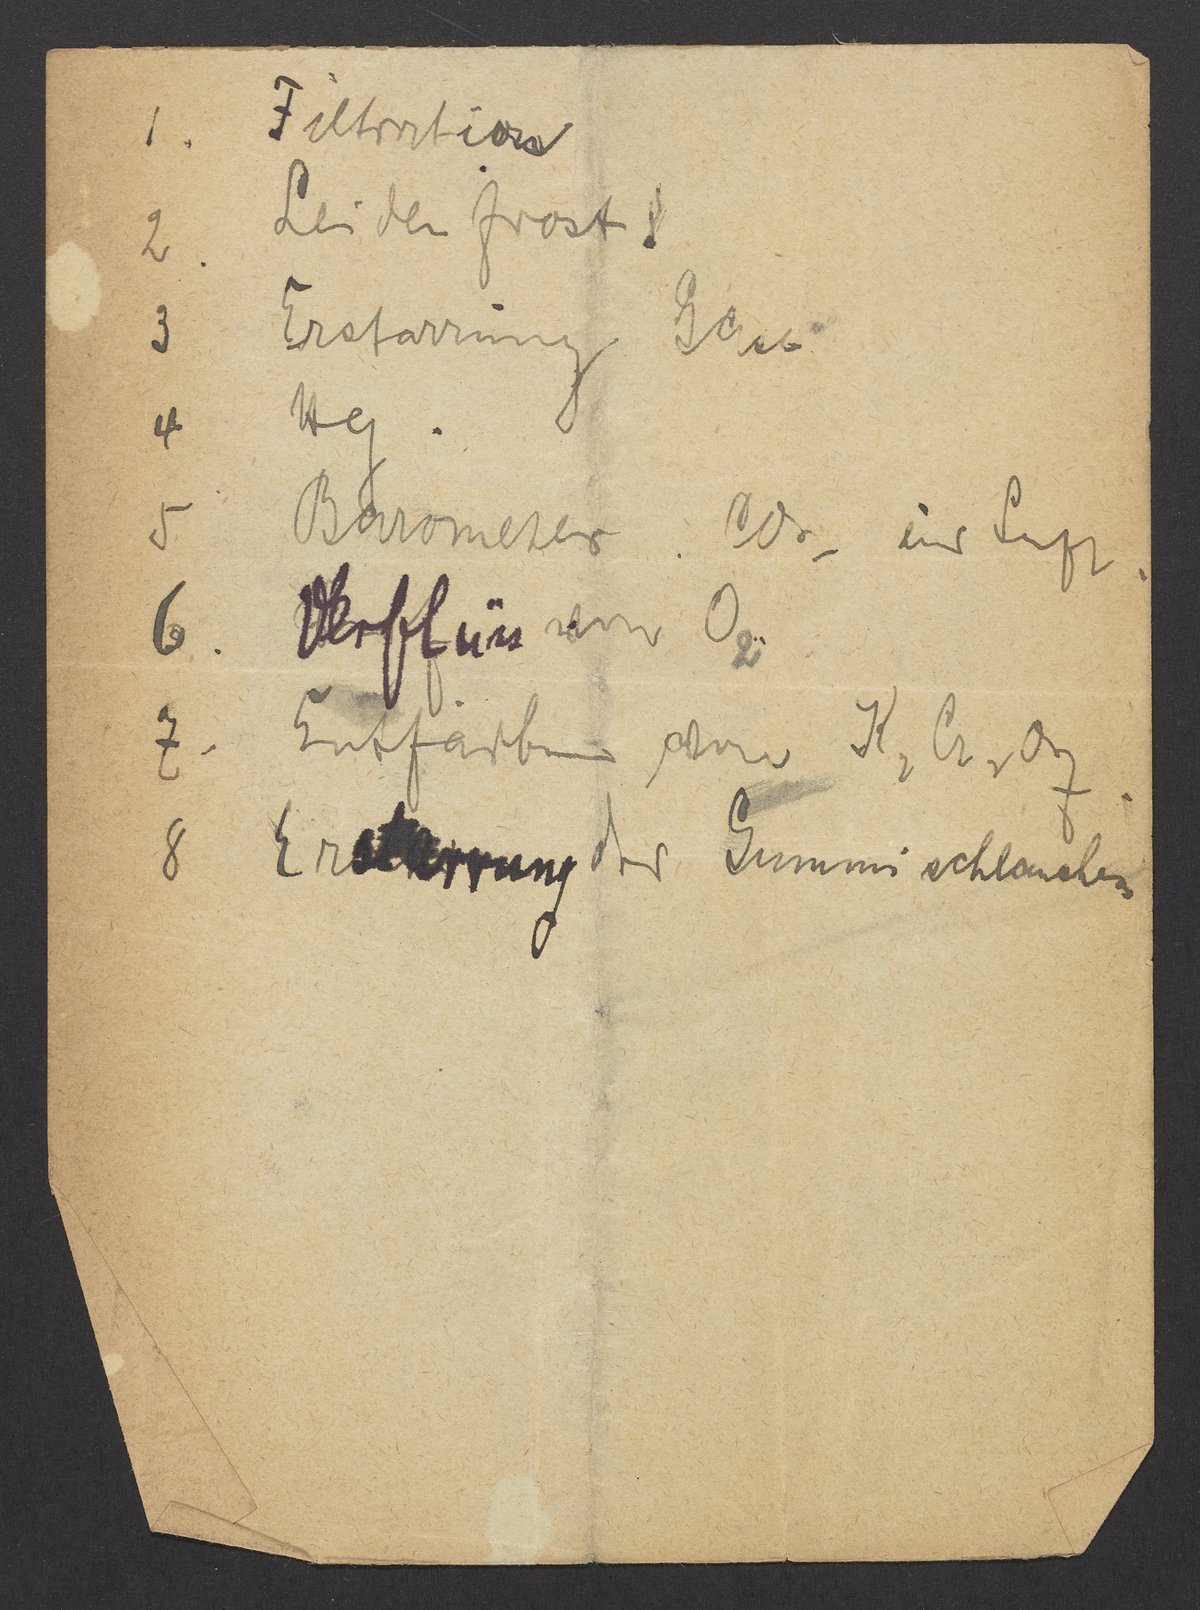 1. Filtration
2. Leidenfrost!
3 Erstarrung
4 Hg.
5 Barometer. CO₂ Luft.
6. Verflüs von O₂
7. Entfärben von K₂Cr₂O₇.
8 Erstarrung des Gummischlauches